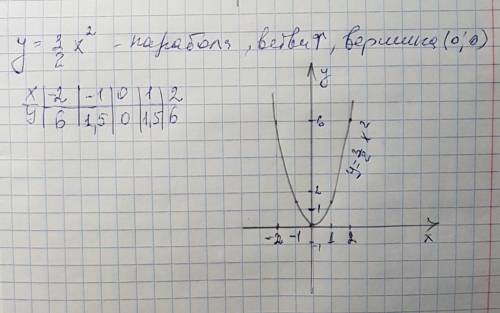 y = 3/2 x² - парабола, ветви↑, вершина (0; 0)
x | -2 | -1 | 0 | 1 | 2
y | 6 | 1,5 | 0 | 1,5 | 6
y
6
2
1
-2 -1 1 2
x
-1
y=3/2 x²